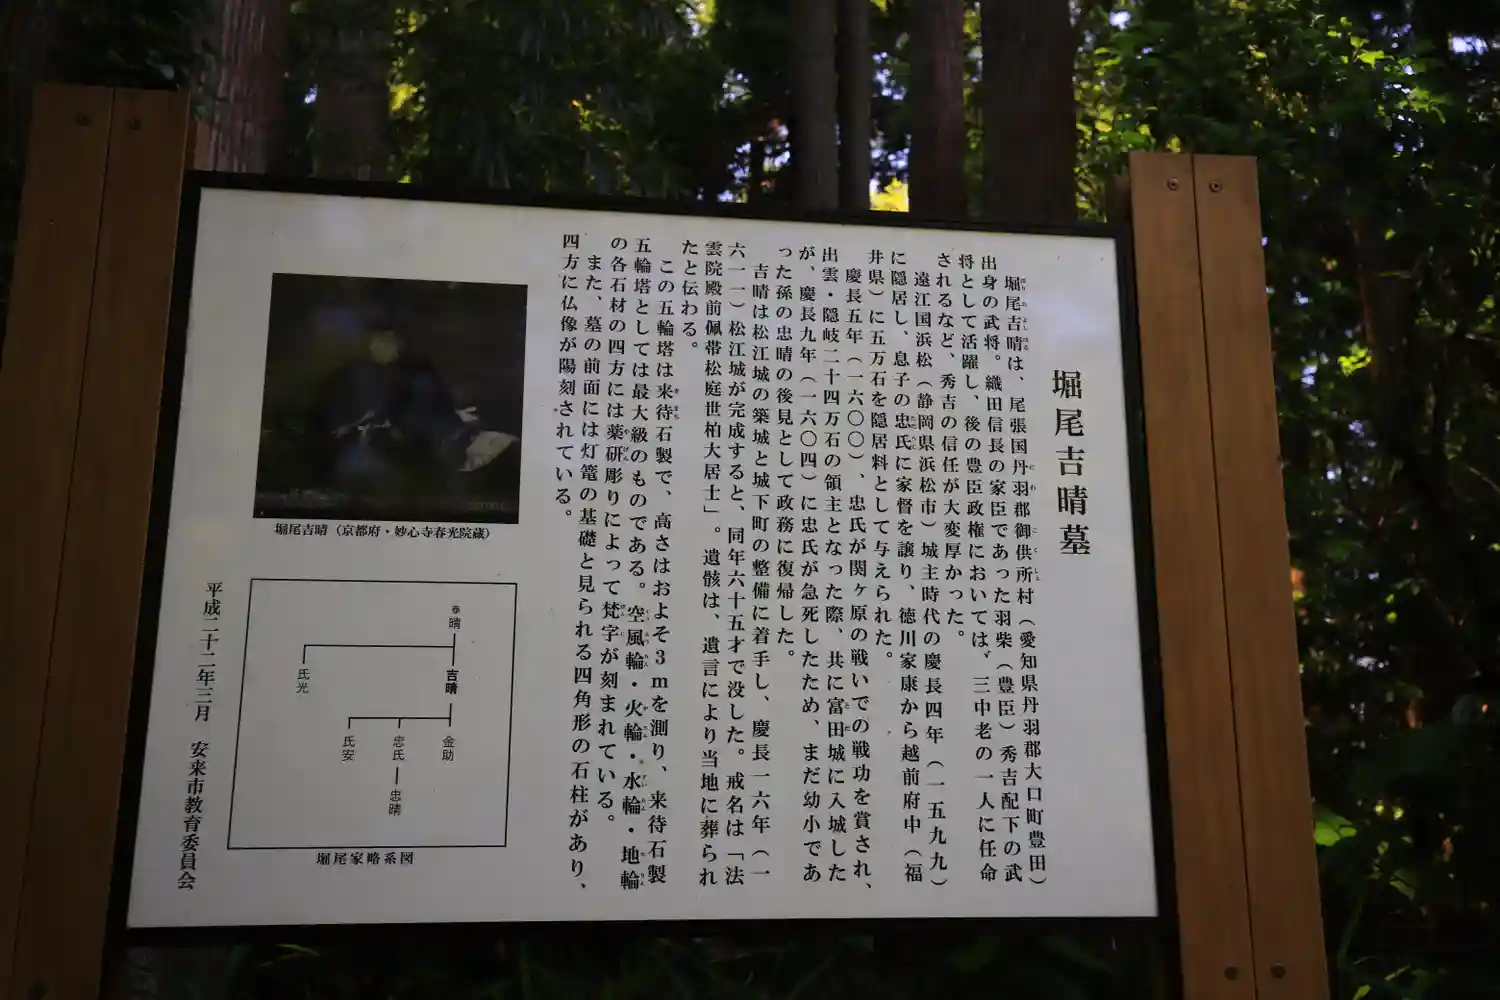 堀尾吉晴墓
堀尾吉晴は、尾張国丹羽郡御供所村（愛知県丹羽郡大口町豊田）
出身の武将。織田信長の家臣であった羽柴（豊臣）秀吉配下の武
将として活躍し、後の豊臣政権においては、三中老の一人に任命
されるなど、秀吉の信任が大変厚かった。
遠江国浜松（静岡県浜松市）城主時代の慶長四年（一五九九）
に隠居し、息子の忠氏に家督を譲り、徳川家康から越前府中（福
井県）に五万石を隠居料として与えられた。
慶長五年（一六〇〇）、忠氏が関ヶ原の戦いでの戦功を賞され、
出雲・隠岐二十四万石の領主となった際、共に富田城に入城した
が、慶長九年（一六〇四）に忠氏が急死したため、まだ幼小であ
った孫の忠晴の後見として政務に復帰した。
吉晴は松江城の築城と城下町の整備に着手し、慶長一六年（一
六一一）松江城が完成すると、同年六十五才で没した。戒名は「法
雲院殿前佩帯松庭世柏大居士」。遺骸は、遺言により当地に葬られ
たと伝わる。
この五輪塔は来待石製で、高さはおよそ3mを測り、来待石製
五輪塔としては最大級のものである。空風輪・火輪・水輪・地輪
の各石材の四方には薬研彫りによって梵字が刻まれている。
また、墓の前面には灯篭の基礎と見られる四角形の石柱があり、
四方に仏像が陽刻されている。
堀尾吉晴（京都府・妙心寺春光院蔵）
泰晴
吉晴
氏光
金助
忠氏
忠晴
氏安
堀尾家略系図
平成二十二年三月　安来市教育委員会